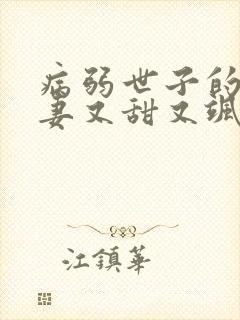 病弱世子的
妻又甜又飒
江镇華